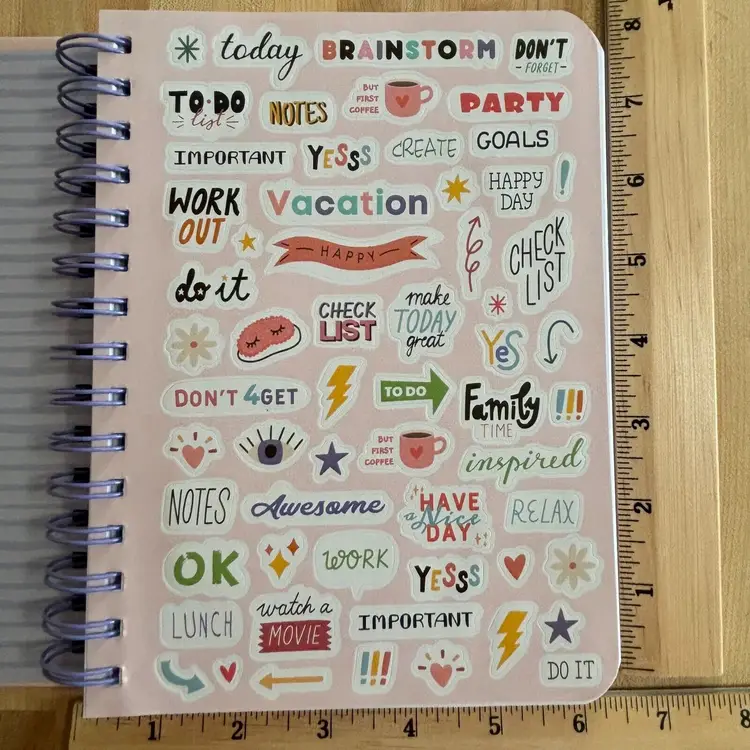 today
BRAINSTORM
DON'T
- FORGET -
TO·DO
list
NOTES
BUT
FIRST
COFFEE
PARTY
IMPORTANT
YESSS
CREATE
GOALS
WORK
OUT
Vacation
HAPPY
DAY
!
HAPPY
CHECK
LIST
do it
CHECK
LIST
make
TODAY
great
YeS
DON'T 4GET
TO DO
Family
TIME
!!!
BUT
FIRST
COFFEE
inspired
NOTES
Awesome
HAVE
a Nice
DAY
RELAX
OK
WORK
YESSS
LUNCH
watch a
MOVIE
IMPORTANT
!!!
DO IT
8
7
6
5
4
3
2
1
1
2
3
4
5
6
7
8